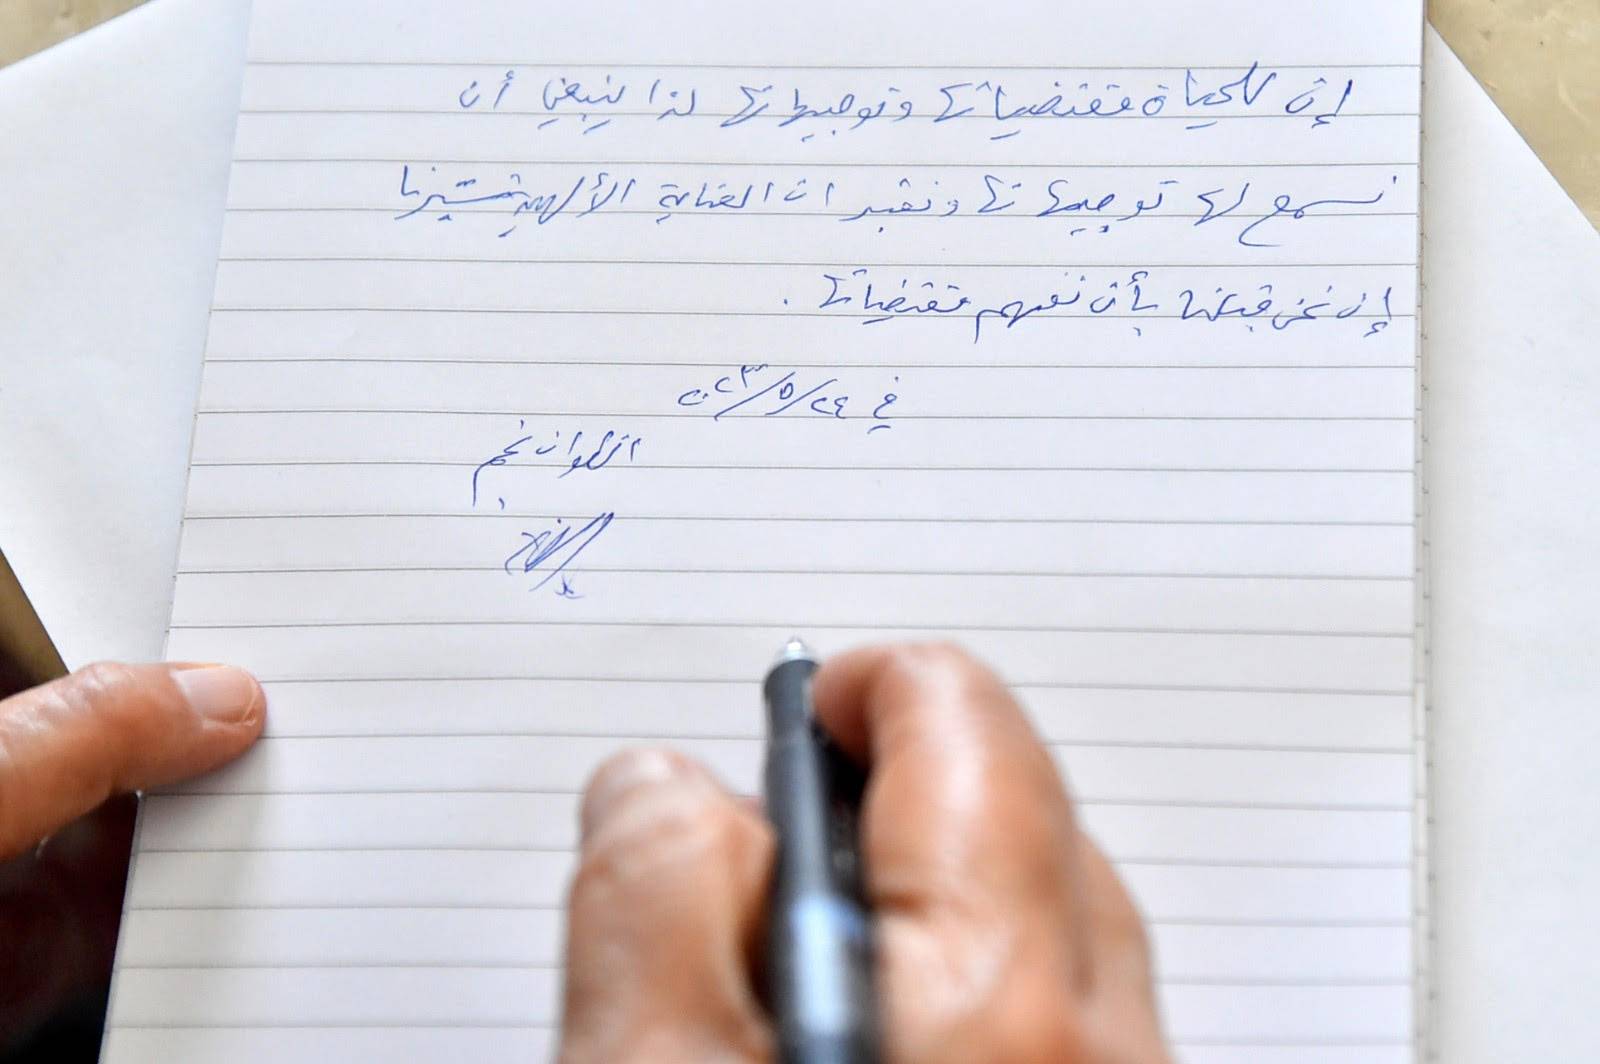 إن للحياة مقتضياتها وتوجيهاتها لذا ينبغي أن
نسمع لها توجيهاتها ونعتبر ان العناية الألهية تسيرنا
إن نحن قبلنا بأن نفهم مقتضياتها .
في ٢٤/٥/٢٠٢٣
انطوان نجم